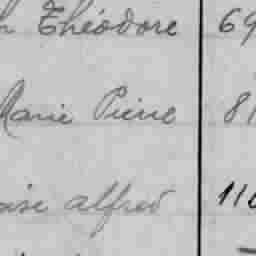 Théodore 69
Marie Pierre 81
alfred 116